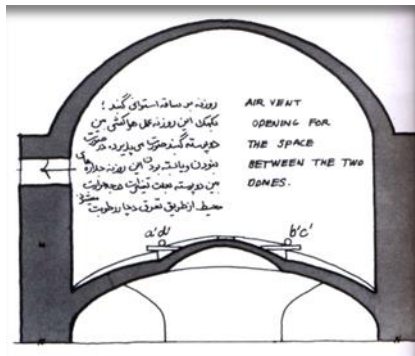 روزنه بر ساقه استوای گنبد ؛
بکمک این روزنه عمل هواکشی بین
دو پوسته گنبد صورت می پذیرد. در صورت
نبودن و یا بسته بودن این روزنه جداره های
بین دو پوسته بعلت تغییرات درجه حرارت
محیط از طریق تعرق دچار رطوبت میشود
AIR VENT
OPENING FOR
THE SPACE
BETWEEN THE TWO
DOMES.
a'd'
b'c'